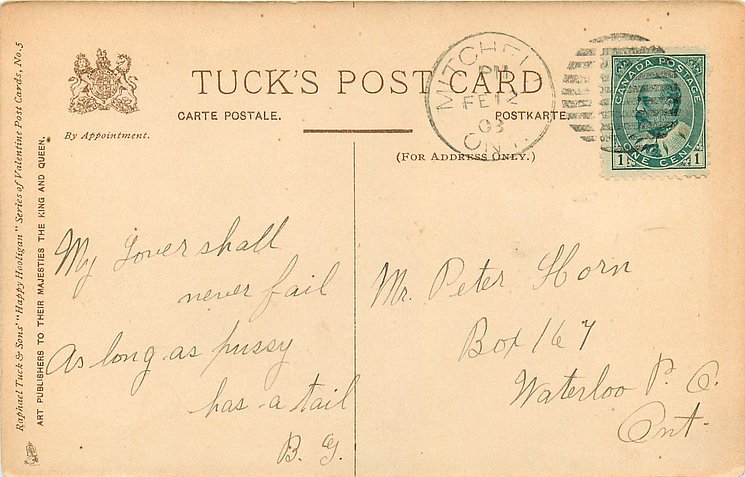 Raphael Tuck & Sons' "Happy Hooligan" Series of Valentine Post Cards, No. 5
ART PUBLISHERS TO THEIR MAJESTIES THE KING AND QUEEN.
By Appointment.
TUCK'S POST CARD
CARTE POSTALE.
POSTKARTE.
(FOR ADDRESS ONLY.)
MITCHELL
PM
FE 12
08
ONT.
CANADA POSTAGE
1 ONE CENT 1
My Lover shall
never fail
As long as pussy
has a tail
B. G.
Mr. Peter Horn
Box 167
Waterloo P. O.
Ont.